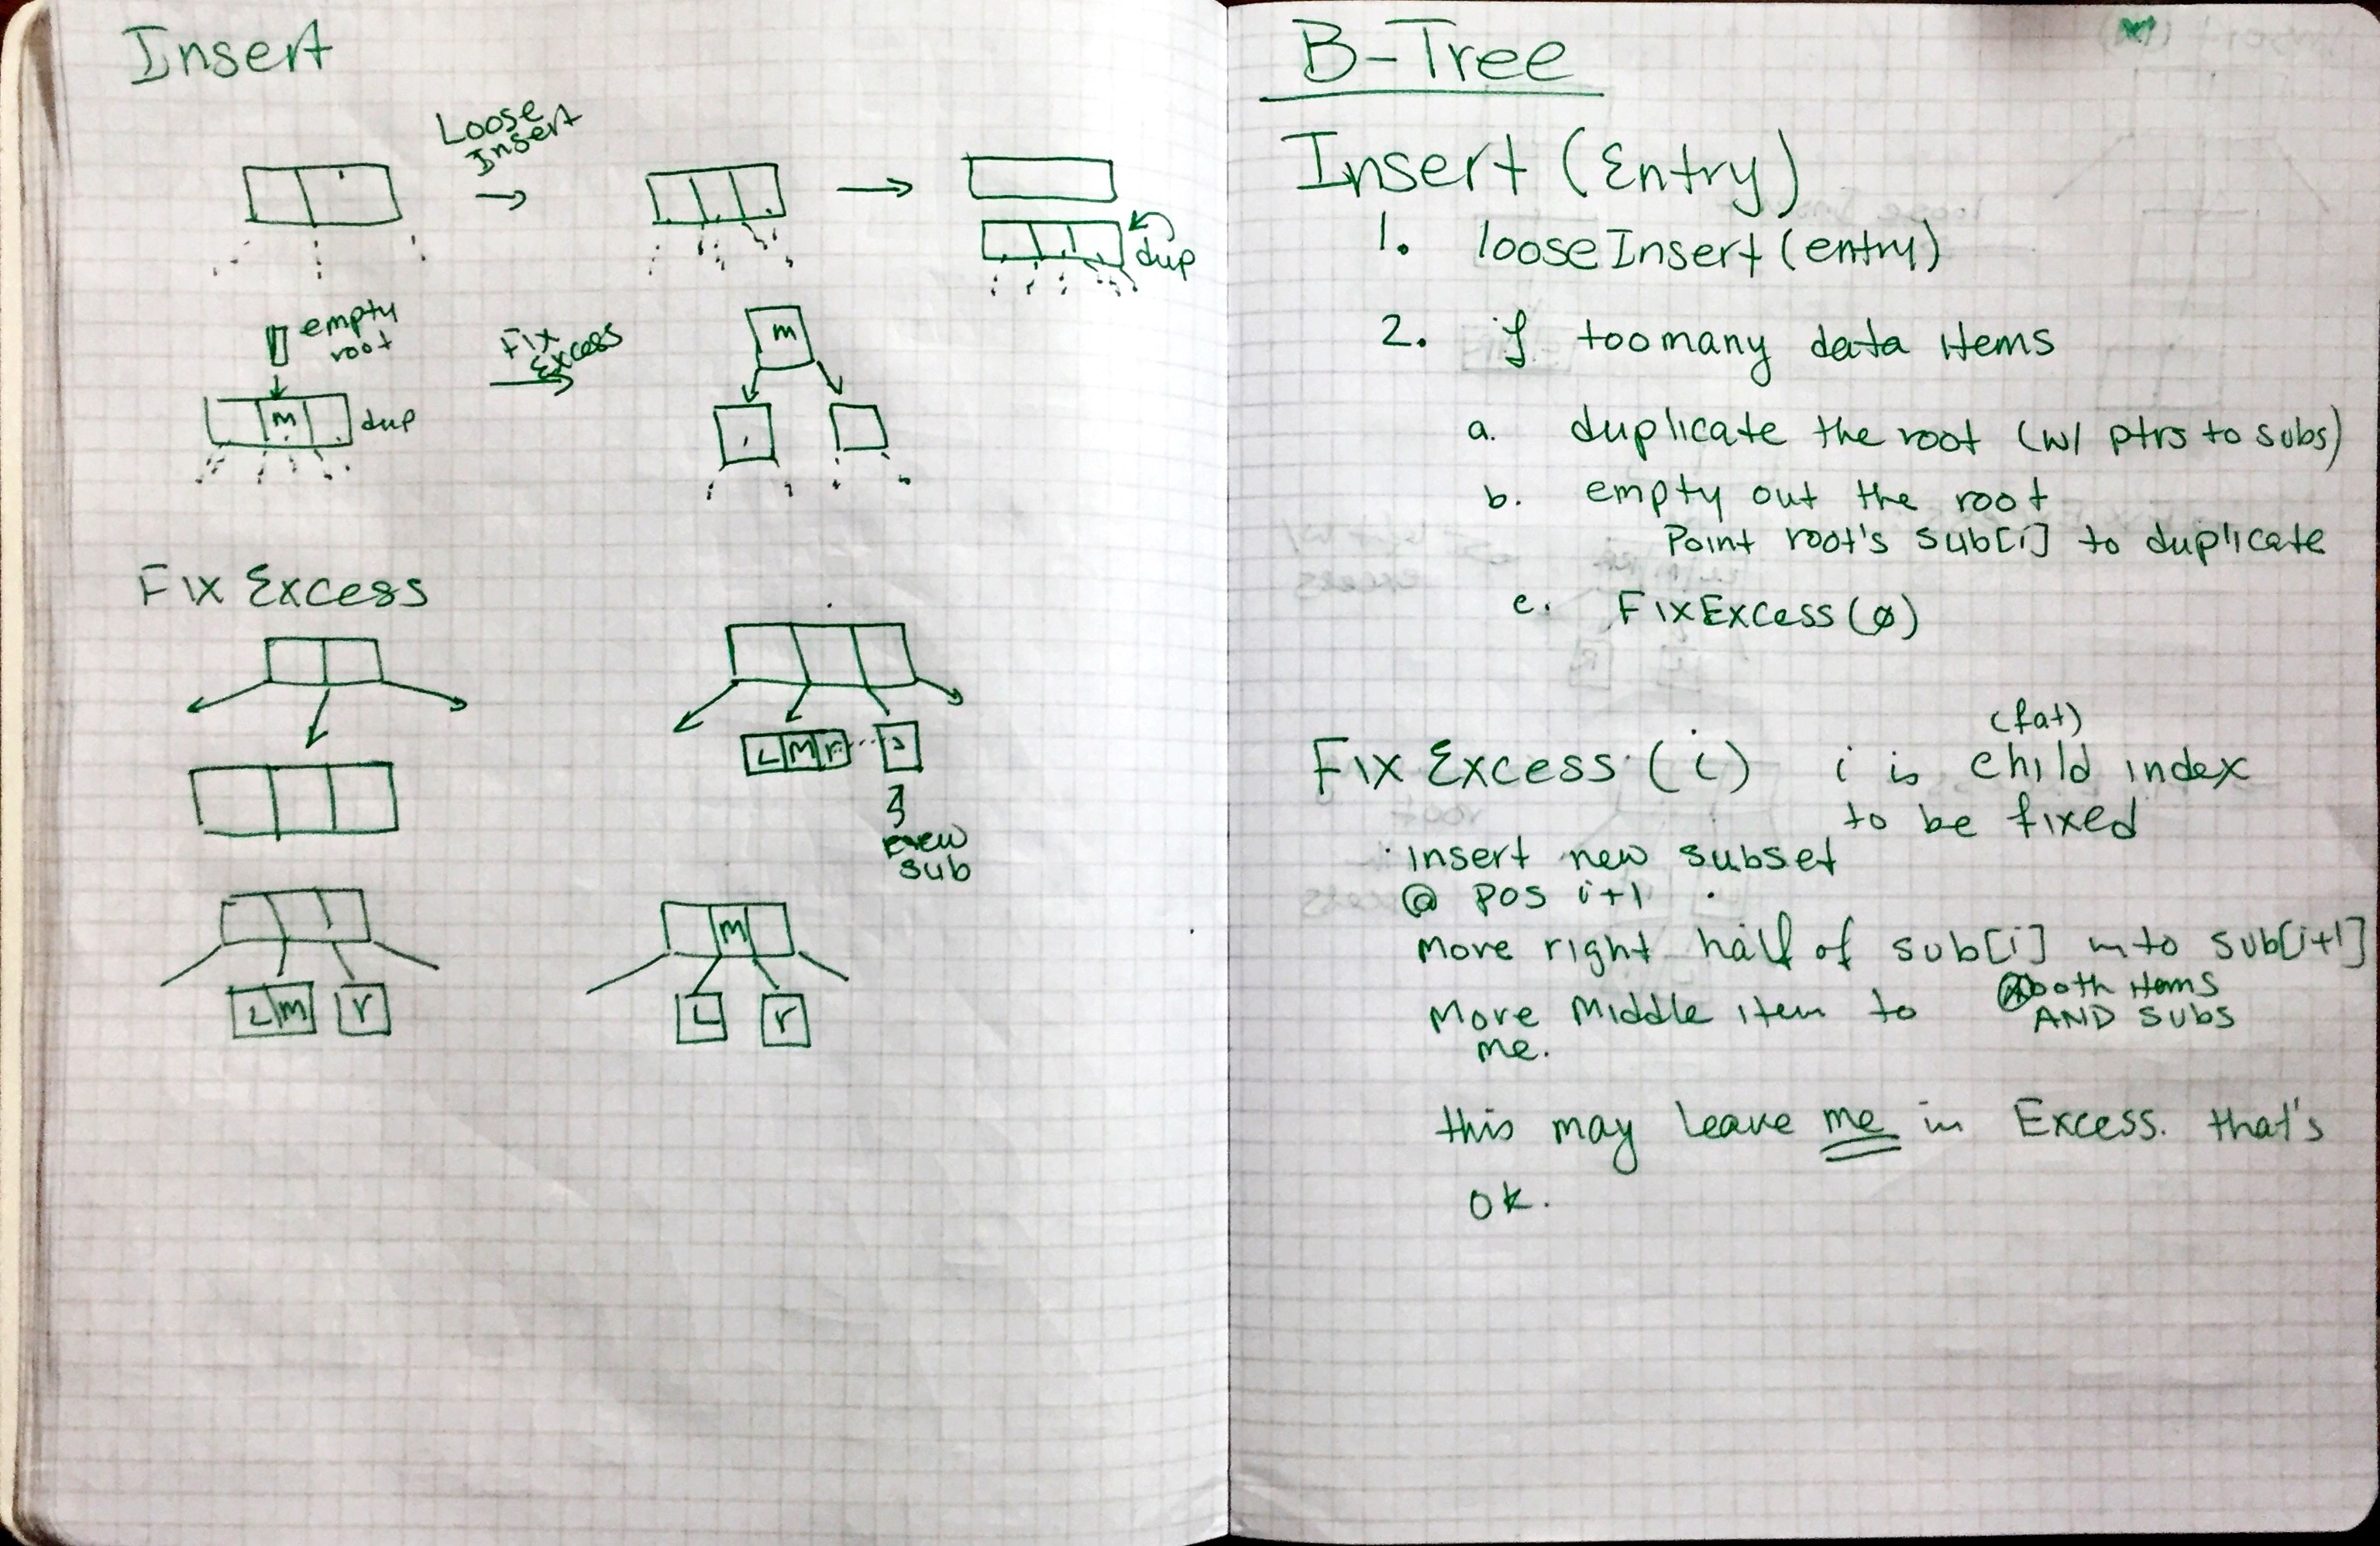 Insert
Loose
Insert
dup
empty
root
m
dup
Fix
Excess
m
Fix Excess
L M r
new
sub
L m r
m
L r
B-Tree
Insert (Entry)
1. looseInsert (entry)
2. if too many data items
a. duplicate the root (w/ ptrs to subs)
b. empty out the root
Point root's sub[i] to duplicate
c. FixExcess (ø)
(fat)
Fix Excess (i) i is child index
to be fixed
insert new subset
@ pos i+1
move right half of sub[i] into sub[i+1]
both items
AND subs
More Middle item to
me.
this may leave me in Excess. that's
ok.